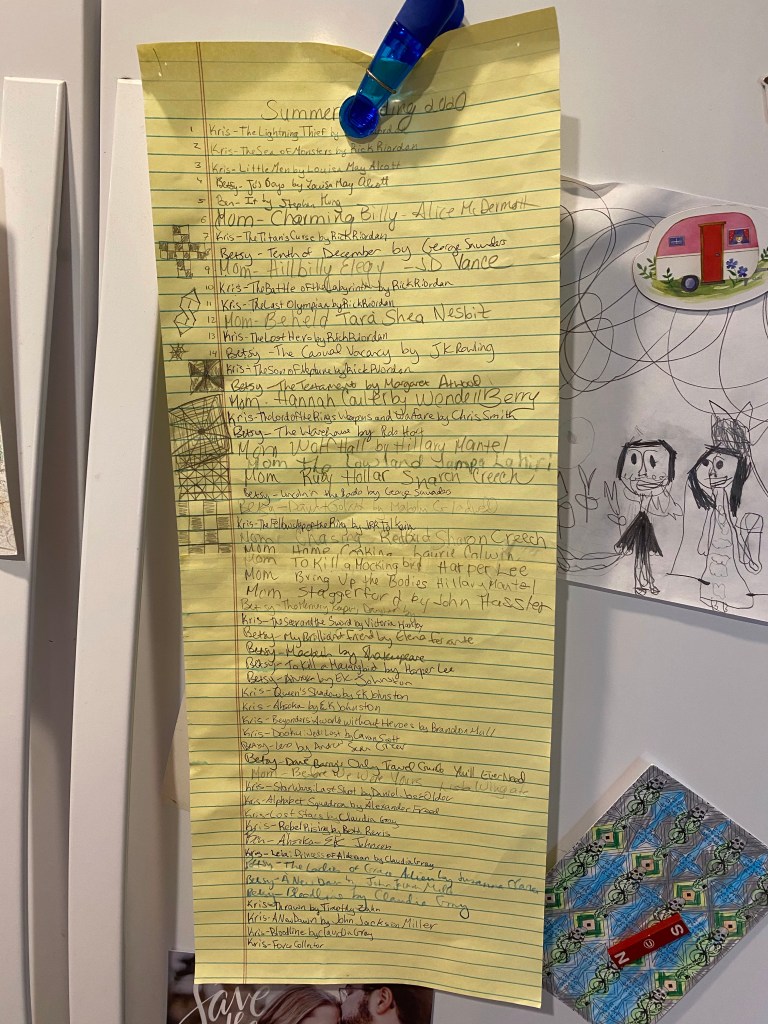 Summer ding 2020
1 Kris-The Lightning Thief by
2 Kris-The Sea of Monsters by Rick Riordan
3 Kris-Little Men by Louisa May Alcott
4 Betsy-Jo's Boys by Louisa May Alcott
5 Ben-It by Stephen King
6 Mom-Charming Billy-Alice McDermott
7 Kris-The Titan's Curse by Rick Riordan
8 Betsy-Tenth of December by George Saunders
9 Mom-Hillbilly Elegy-JD Vance
10 Kris-The Battle of the Labyrinth by Rick Riordan
11 Kris-The Last Olympian by Rick Riordan
12 Mom-Beheld Tara Shea Nesbit
13 Kris-The Lost Hero by Rick Riordan
14 Betsy-The Casual Vacancy by JK Rowling
Kris-The Son of Neptune by Rick Riordan
Betsy-The Testaments by Margaret Atwood
Mom-Hannah Coulter by Wendell Berry
Kris-The Lord of the Rings Weapons and Warfare by Chris Smith
Betsy-The Warehouse by Rob Hart
Mom Wolf Hall by Hillary Mantel
Mom The Lowland Jumpa Lahiri
Mom Ruby Hollar Sharon Creech
Betsy-Lincoln in the Bardo by George Saunders
Kris-The Fellowship of the Ring by JRR Tolkein
Mom Chasing Redbird Sharon Creech
Mom Home Cooking Laurie Colwin
Mom To Kill a Mockingbird Harper Lee
Mom Bring Up the Bodies Hillary Mantel
Mom Staggerford by John Hassler
Betsy-The
Kris-The Seer and the Sword by Victoria Hanley
Betsy-My Brilliant Friend by Elena Ferrante
Betsy-Macbeth by Shakespeare
Betsy-To Kill a Mockingbird by Harper Lee
Betsy-Ahsoka by EK Johnston
Kris-Queen's Shadow by EK Johnston
Kris-Ahsoka by EK Johnston
Kris-Beyonders A World Without Heroes by Brandon Mull
Kris-Dooku: Jedi Lost by Cavan Scott
Betsy-Less by Andrew Sean Greer
Betsy-Dave Barry's Only Travel Guide You'll Ever Need
Mom-Before We Were Yours Wingate
Kris-Star Wars: Last Shot by Daniel José Older
Kris-Alphabet Squadron by Alexander Freed
Kris-Lost Stars by Claudia Gray
Kris-Rebel Rising by Beth Revis
Ben-Ahsoka-EK Johnson
Kris-Leia: Princess of Alderaan by Claudia Gray
Betsy-The Ladies of Grace Adieu by Susanna
Betsy-A New Dawn by John Miller
Betsy-Bloodline by Claudia Gray
Kris-Thrawn by Timothy Zahn
Kris-A New Dawn by John Jackson Miller
Kris-Bloodline by Claudia Gray
Kris-Force Collector
S
N
Save
the